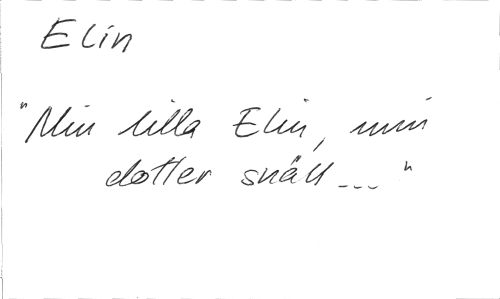 Elin
"Min lilla Elin, min
dotter snäll---"